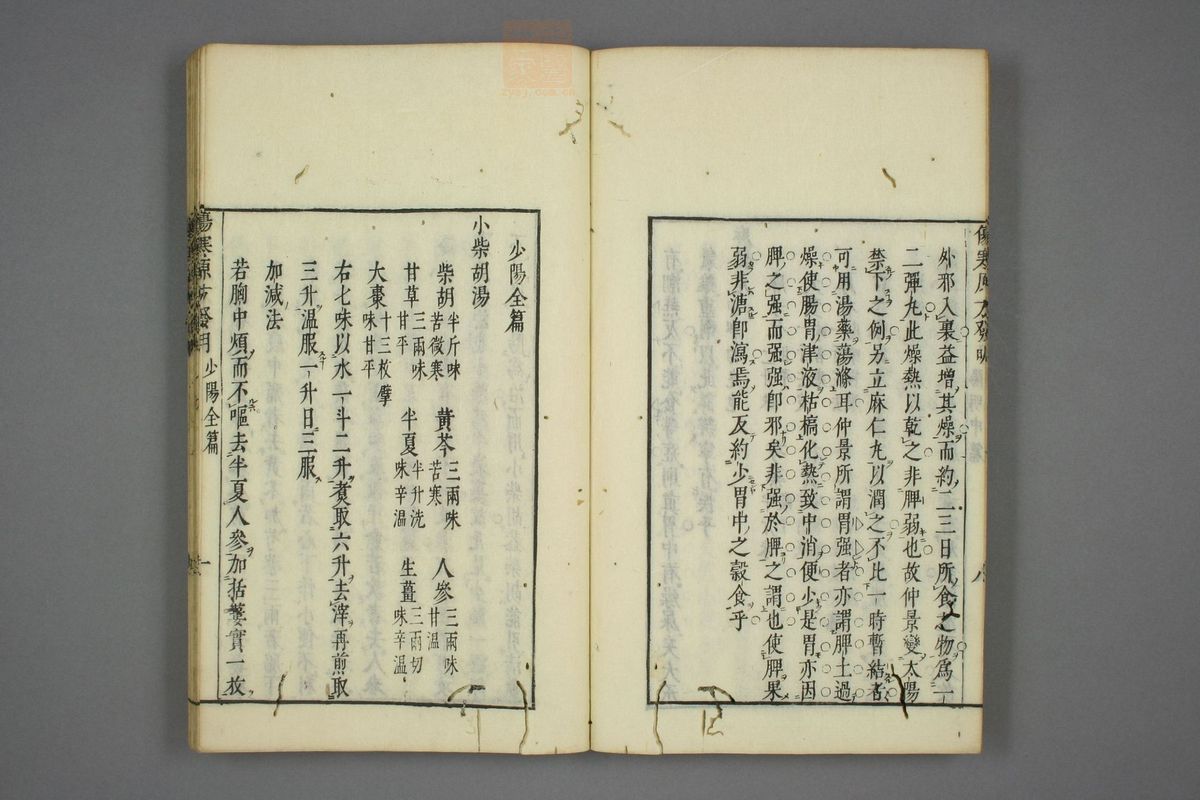 外邪入裏益增其燥而約二三日所食之物爲一
二彈丸此燥熱以乾之非脾弱也故仲景變太陽
禁下之例另立麻仁丸以潤之不比一時暫結者
可用湯藥蕩滌耳仲景所謂胃强者亦謂脾土過
燥使腸胃津液枯槁化熱致中消便少是胃亦因
脾之强而强强卽邪矣非强於脾之謂也使脾果
弱非溏卽瀉焉能反約少胃中之穀食乎
少陽全篇
小柴胡湯
柴胡半斤味苦微寒 黄芩三兩味苦寒 人參三兩味甘温
甘草三兩味甘平 半夏半升洗味辛温 生薑三兩切味辛温
大棗十三枚擘味甘平
右七味以水一斗二升煑取六升去滓再煎取
三升温服一升日三服
加減法
若胸中煩而不嘔去半夏人參加括蔞實一枚
少陽全篇
zysj.com.cn